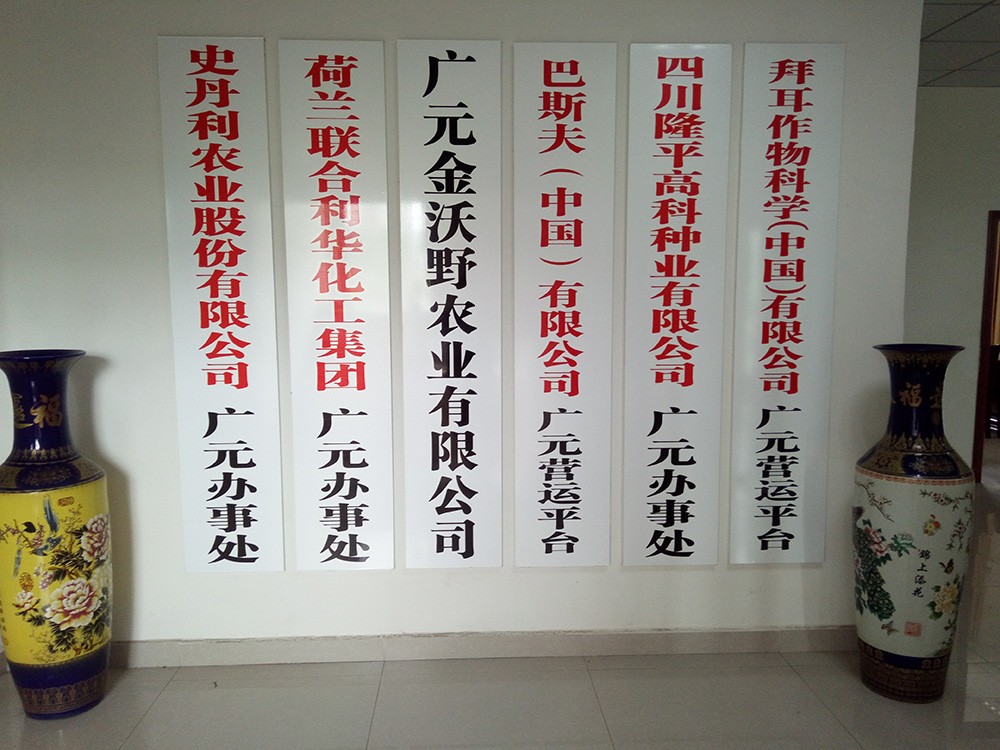 史丹利农业股份有限公司 广元办事处
荷兰联合利华化工集团 广元办事处
广元金沃野农业有限公司
巴斯夫(中国)有限公司 广元营运平台
四川隆平高科种业有限公司 广元办事处
拜耳作物科学(中国)有限公司 广元营运平台
福
福
锦上添花